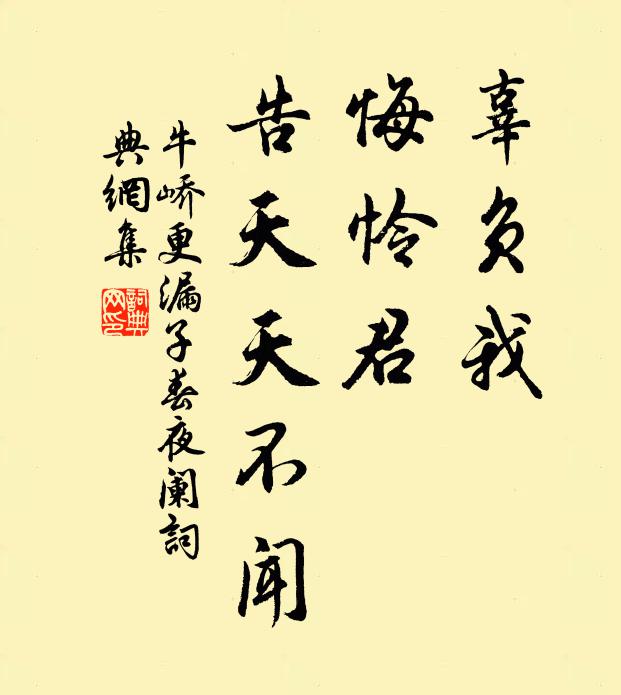 辜负我
悔怜君
告天天不闻
牛峤更漏子春夜阑詞
典網集
詞典网印